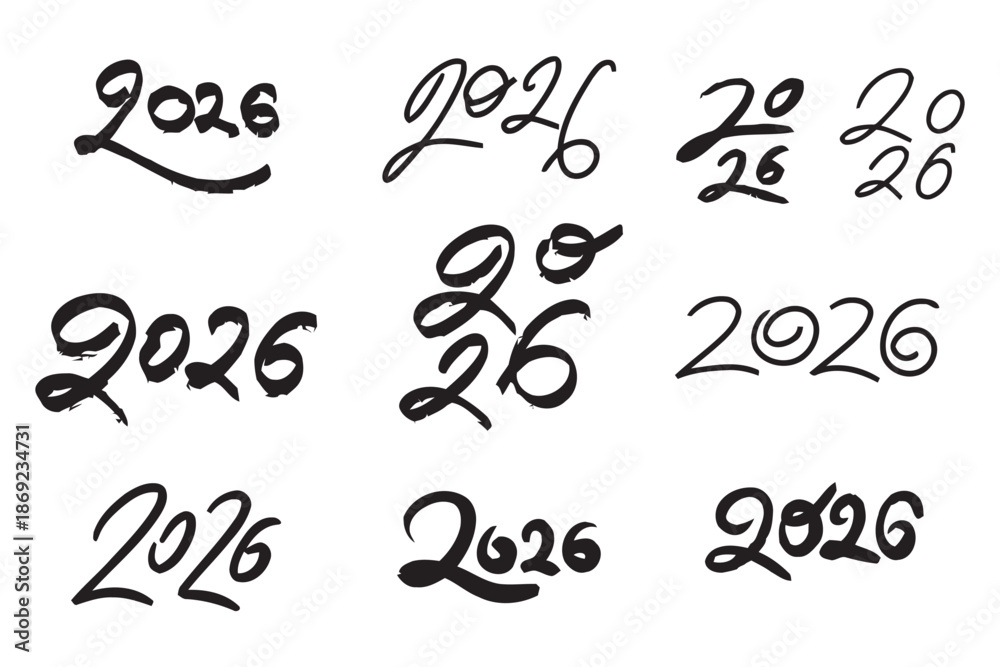 2026
2026
20
26
20
26
2026
20
26
2026
2026
2026
2026
Adobe Stock | #1869234731